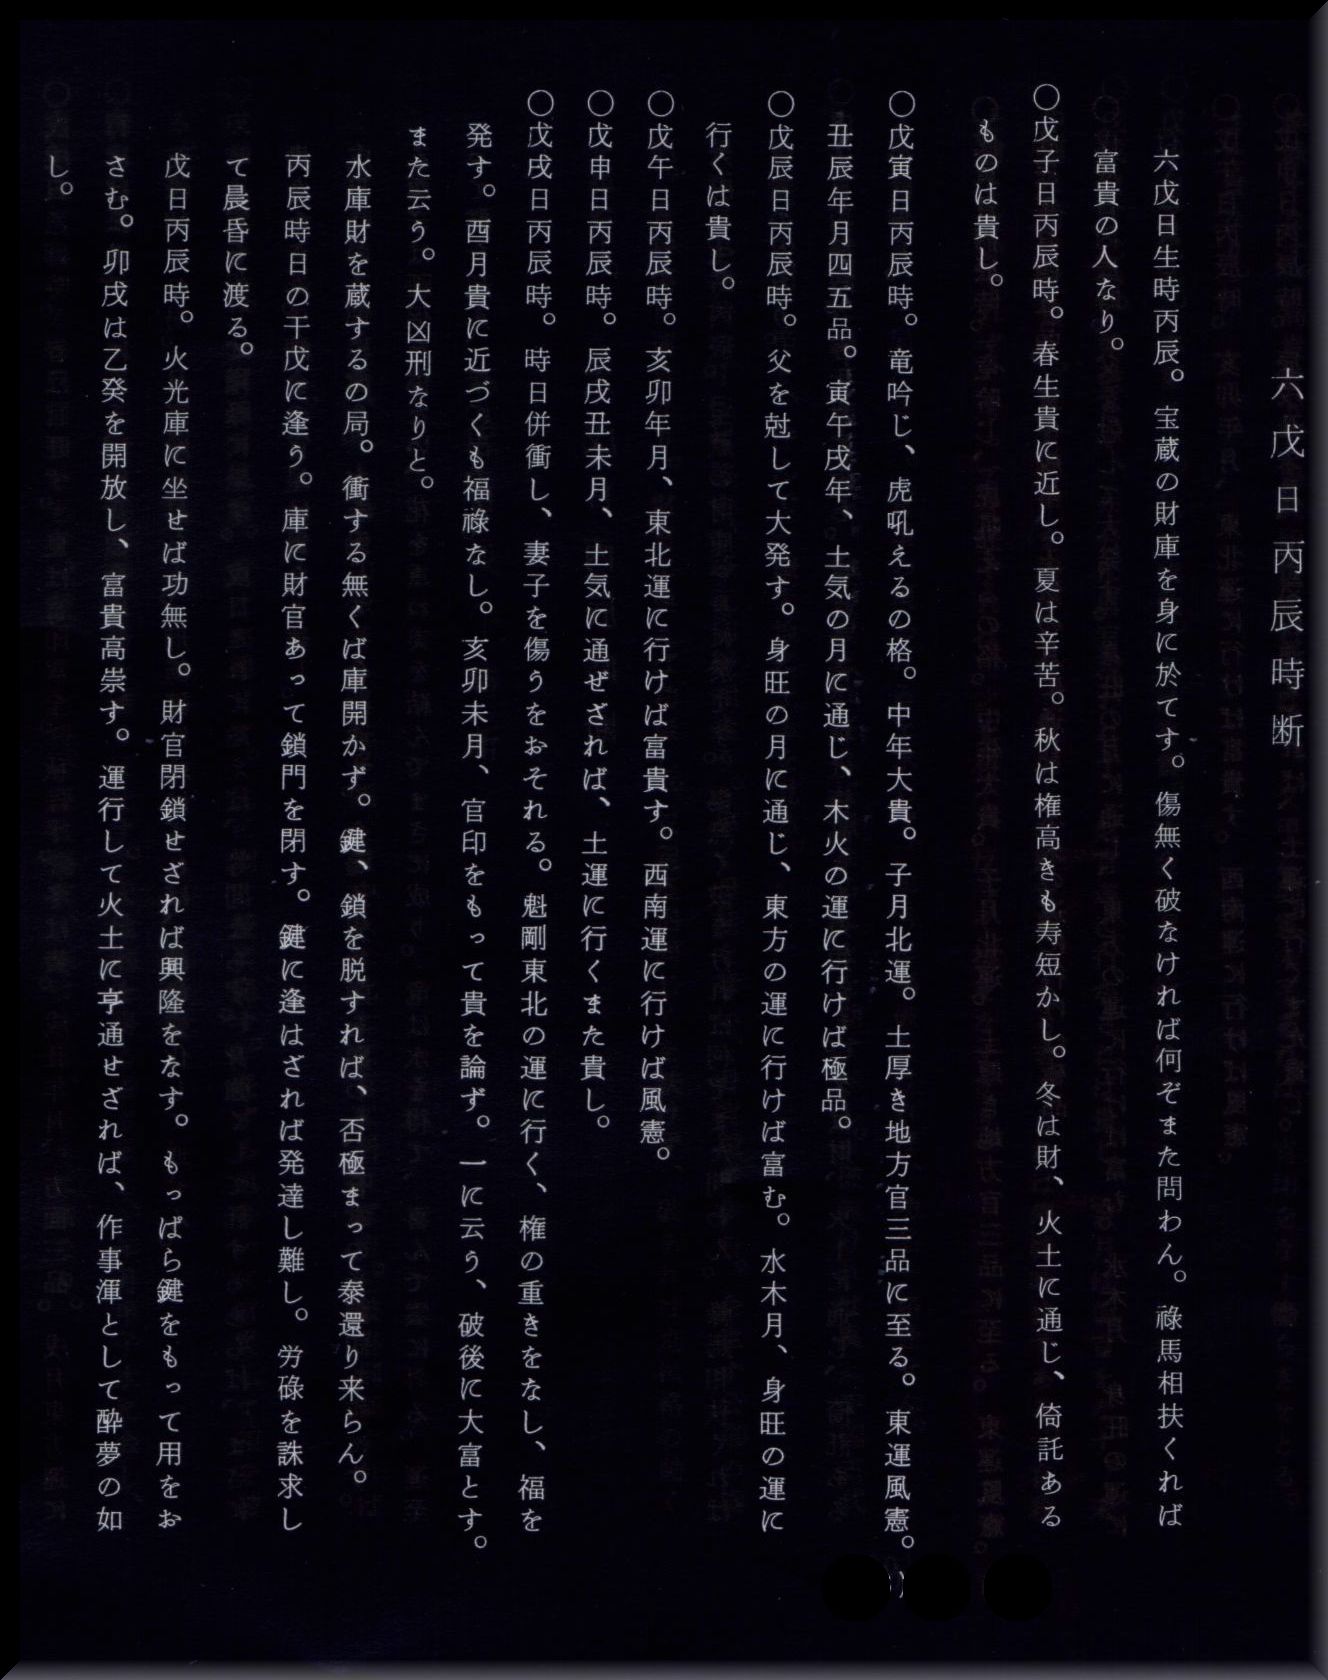 六戊日丙辰時断
六戊日生時丙辰。宝蔵の財庫を身に於てす。傷無く破なければ何ぞまた問わん。祿馬相扶くれば
富貴の人なり。
〇戊子日丙辰時。春生貴に近し。夏は辛苦。秋は権高きも寿短かし。冬は財、火土に通じ、倚託ある
ものは貴し。
〇戊寅日丙辰時。竜吟じ、虎吼えるの格。中年大貴。子月北運。土厚き地方官三品に至る。東運風憲。
丑辰年月四五品。寅午戌年、土気の月に通じ、木火の運に行けば極品。
〇戊辰日丙辰時。父を尅して大発す。身旺の月に通じ、東方の運に行けば富む。水木月、身旺の運に
行くは貴し。
〇戊午日丙辰時。亥卯年月、東北運に行けば富貴す。西南運に行けば風憲。
〇戊申日丙辰時。辰戌丑未月、土気に通ぜざれば、土運に行くまた貴し。
〇戊戌日丙辰時。時日併衝し、妻子を傷うをおそれる。魁剛東北の運に行く、権の重きをなし、福を
発す。酉月貴に近づくも福祿なし。亥卯未月、官印をもって貴を論ず。一に云う、破後に大富とす。
また云う。大凶刑なりと。
水庫財を蔵するの局。衝する無くば庫開かず。鍵、鎖を脱すれば、否極まって泰還り来らん。
丙辰時日の干戊に逢う。庫に財官あって鎖門を閉す。鍵に逢はざれば発達し難し。労碌を誅求し
て晨昏に渡る。
戊日丙辰時。火光庫に坐せば功無し。財官閉鎖せざれば興隆をなす。もっぱら鍵をもって用をお
さむ。卯戌は乙癸を開放し、富貴高崇す。運行して火土に亨通せざれば、作事渾として酔夢の如
し。